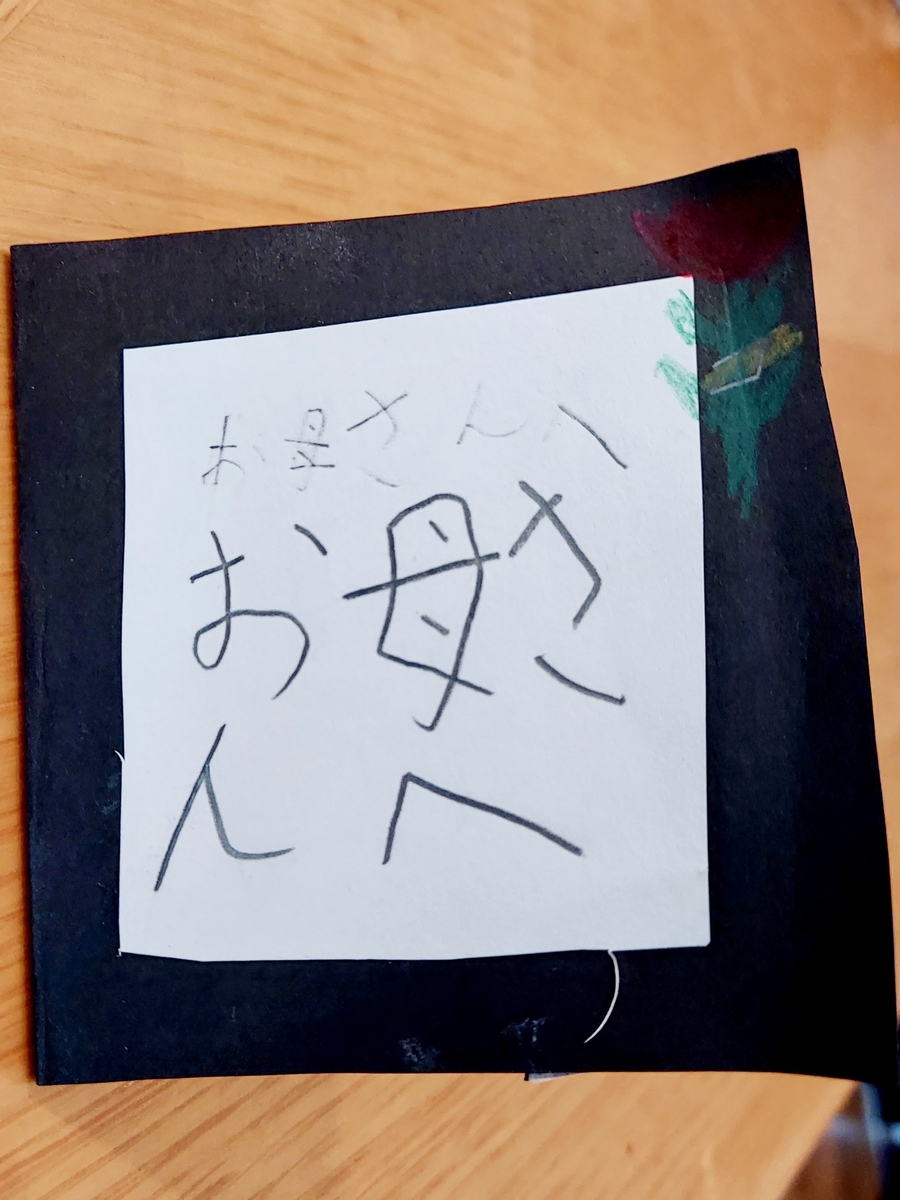 お母さんへ
お母さ
んへ